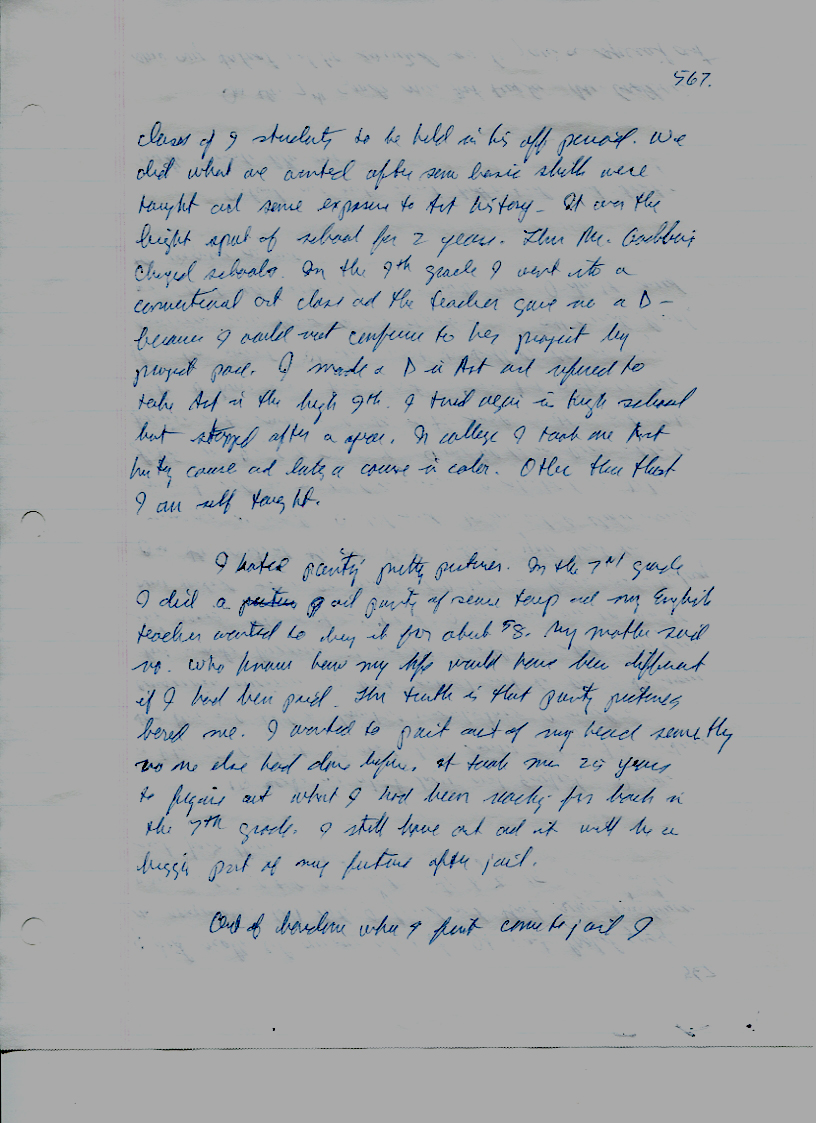 567.
class of 9 students to be held in his off period. We
did what we wanted after some basic skills were
taught and some exposure to Art history. It was the
bright spot of school for 2 years. Then Mr.
changed schools. In the 9th grade I went into a
conventional art class and the teacher gave me a D –
because I would not conform to her project by
project pace. I made a D in Art and refused to
take Art in the high 9th. I tried again in high school
but stopped after a. In college I took one Art
history course and later a course in color. Other than that
I am self taught.
I hated painting pretty pictures. In the 7th grade
I did a oil painting of some and my English
teacher wanted to buy it for about $8. My mother said
no. Who knows how my life would have been different
if I had been paid. The truth is that pretty pictures
bored me. I wanted to paint out of my head something
no one else had done before. It took me 20 years
to figure out what I had been reaching for back in
the 7th grade. I still have art and it will be a
bigger part of my future after jail.
Out of boredom when I first come to jail I